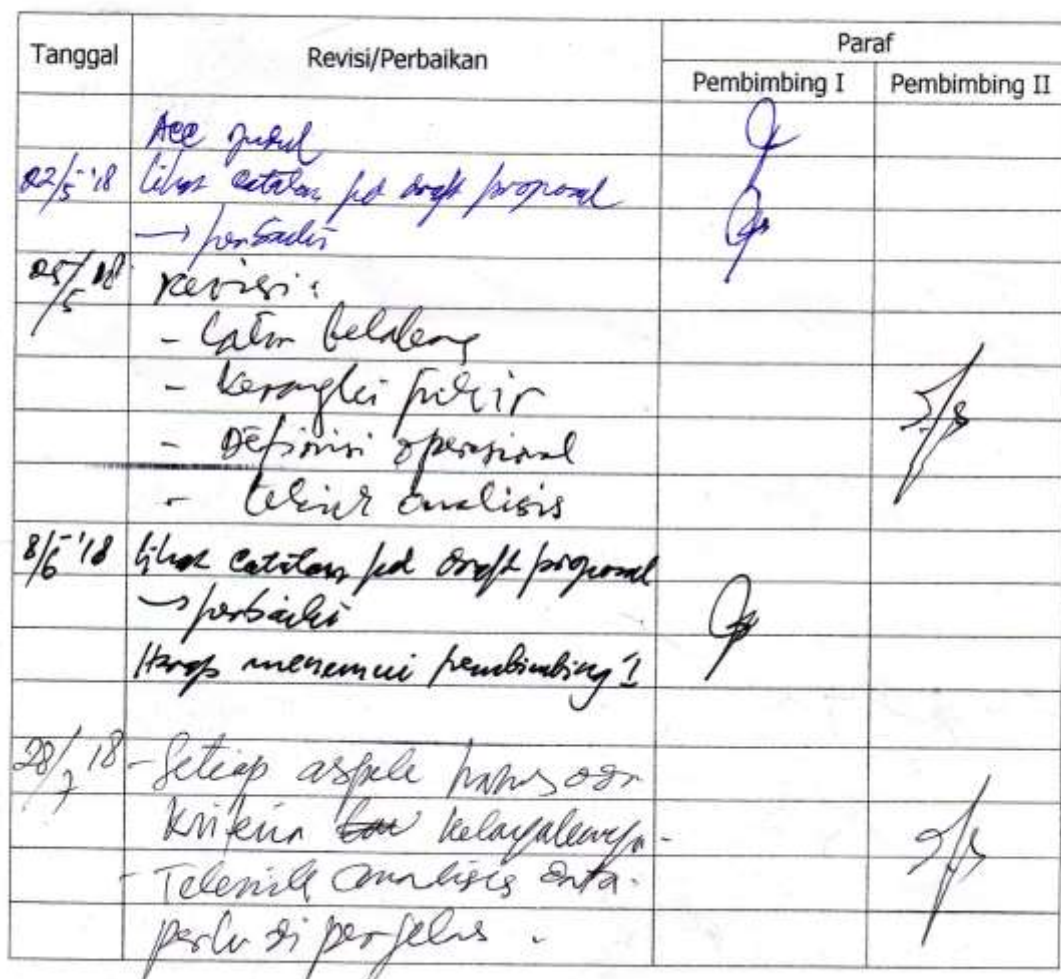 Tanggal Revisi/Perbaikan Paraf
Pembimbing I Pembimbing II
Acc judul
22/5 '18 Lihat catatan pd draft proposal
→ perbaiki
25/5 18 Revisi :
- Latar belakang
- Kerangka pikir
- Definisi operasional
- teknik analisis
8/6 '18 Lihat catatan pd draft proposal
→ perbaiki
Harap menemui pembimbing I
28/7 18 - Setiap aspek harus ada
kriteria kelayakannya.
- Teknik analisis data
perlu di perjelas .